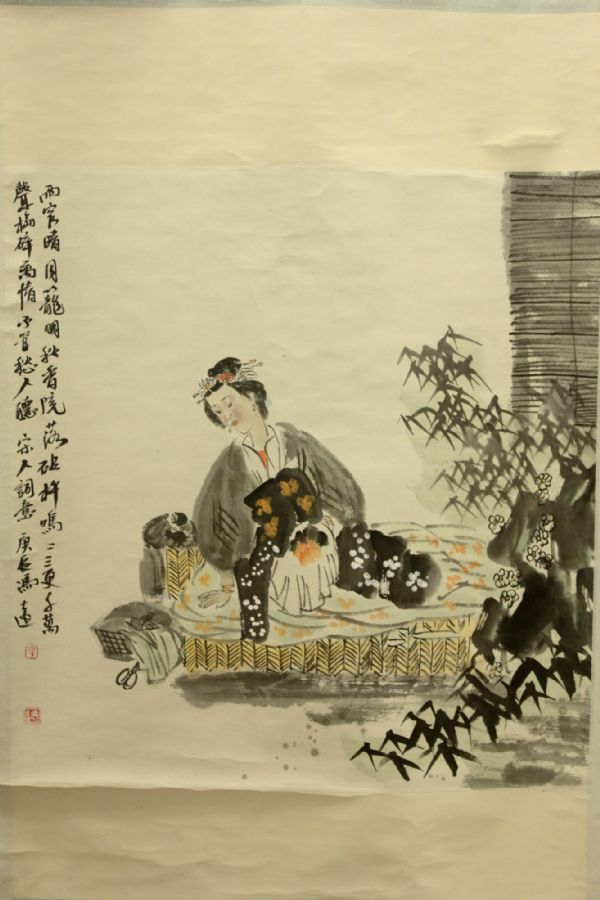 雨晴月籠明秋香院落砧杵鳴二三更千萬
聲搗碎離情不管愁人聽 宋人詞意 庚辰馮遠